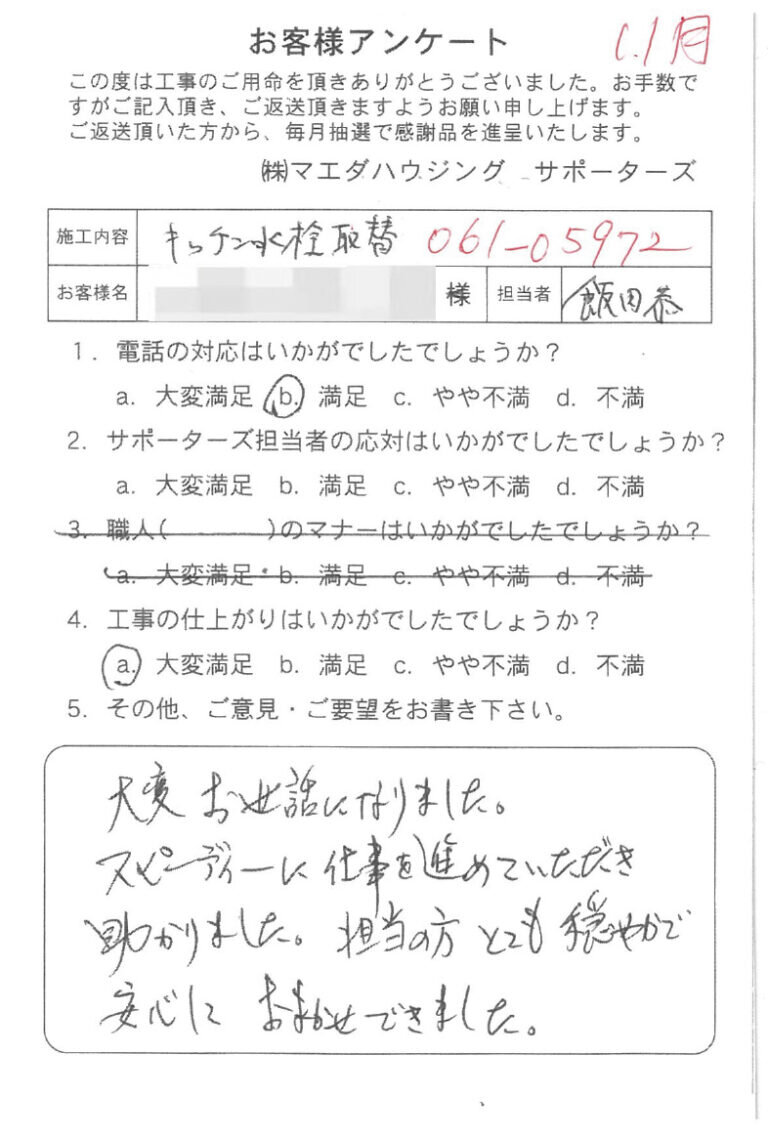 お客様アンケート
この度は工事のご用命を頂きありがとうございました。お手数で
すがご記入頂き、ご返送頂きますようお願い申し上げます。
ご返送頂いた方から、毎月抽選で感謝品を進呈いたします。
㈱マエダハウジング サポーターズ
施工内容 キッチン水栓取替 061-05972
お客様名 様 担当者 飯田恭
1. 電話の対応はいかがでしたでしょうか？
a. 大変満足 b. 満足 c. やや不満 d. 不満
2. サポーターズ担当者の応対はいかがでしたでしょうか？
a. 大変満足 b. 満足 c. やや不満 d. 不満
3. 職人( )のマナーはいかがでしたでしょうか？
a. 大変満足 b. 満足 c. やや不満 d. 不満
4. 工事の仕上がりはいかがでしたでしょうか？
a. 大変満足 b. 満足 c. やや不満 d. 不満
5. その他、ご意見・ご要望をお書き下さい。
大変お世話になりました。
スピーディーに仕事を進めていただき
助かりました。担当の方とても穏やかで
安心しておまかせできました。